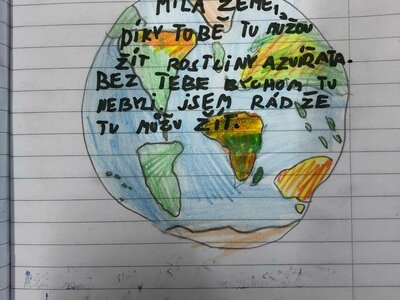 MILÁ ZEMĚ,
DÍKY TOBĚ TU MŮŽOU
ŽÍT ROSTLINY A ZVÍŘATA.
BEZ TEBE BYCHOM TU
NEBYLI. JSEM RÁD ŽE
TU MŮŽU ŽÍT.